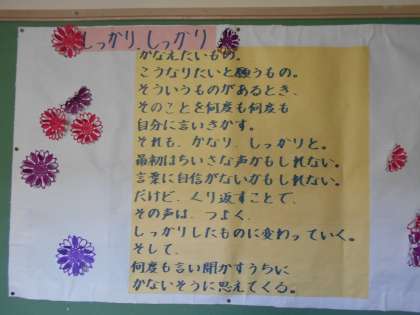 しっかり、しっかり
かなえたいもの。
こうなりたいと願うもの。
そういうものがあるとき、
そのことを何度も何度も
自分に言いきかす。
それも、かなり、しっかりと。
最初はちいさな声かもしれない。
言葉に自信がないかもしれない。
だけど、くり返すことで、
その声は、つよく、
しっかりしたものに変わっていく。
そして、
何度も言い聞かすうちに
かないそうに思えてくる。